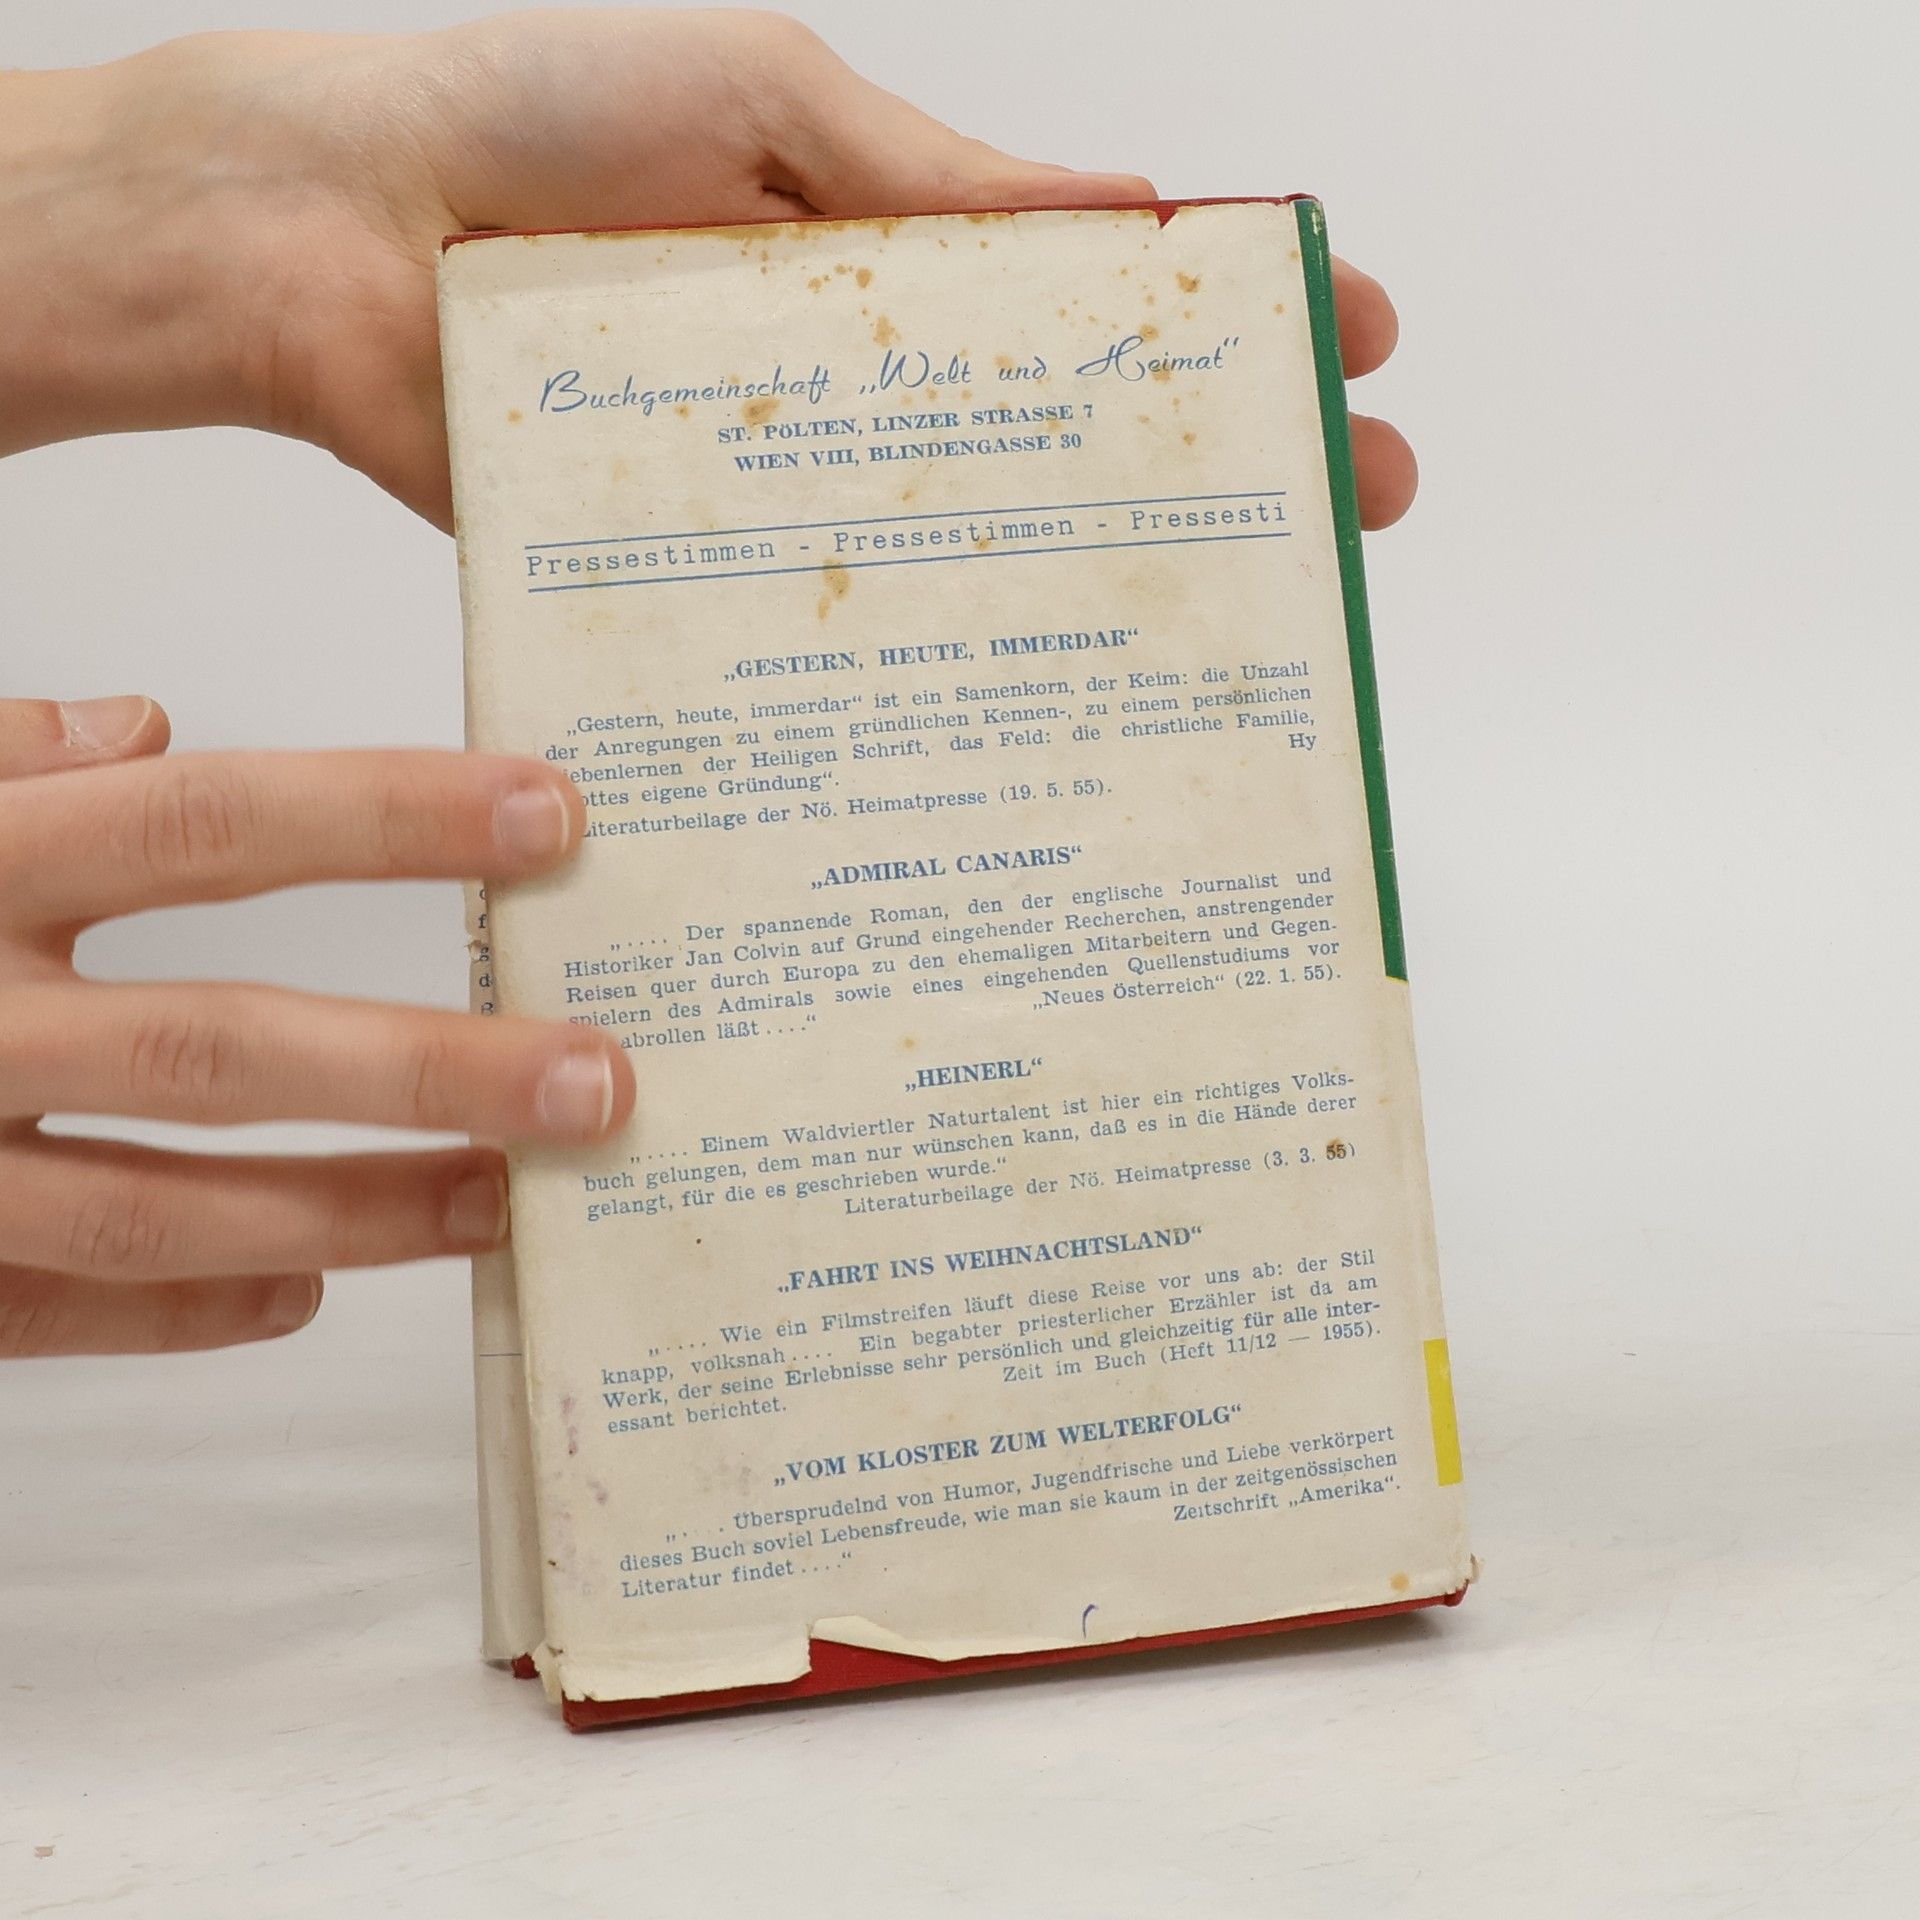 Buchgemeinschaft „Welt und Heimat“
ST. PÖLTEN, LINZER STRASSE 7
WIEN VIII, BLINDENGASSE 30
Pressestimmen - Pressestimmen - Pressesti
„GESTERN, HEUTE, IMMERDAR“
„Gestern, heute, immerdar“ ist ein Samenkorn, der Keim: die Unzahl
der Anregungen zu einem gründlichen Kennen-, zu einem persönlichen
iebenlernen der Heiligen Schrift, das Feld: die christliche Familie,
ottes eigene Gründung“. Hy
Literaturbeilage der Nö. Heimatpresse (19. 5. 55).
„ADMIRAL CANARIS“
„.... Der spannende Roman, den der englische Journalist und
Historiker Jan Colvin auf Grund eingehender Recherchen, anstrengender
Reisen quer durch Europa zu den ehemaligen Mitarbeitern und Gegen-
spielern des Admirals sowie eines eingehenden Quellenstudiums vor
abrollen läßt ....“ „Neues Österreich“ (22. 1. 55).
„HEINERL“
„.... Einem Waldviertler Naturtalent ist hier ein richtiges Volks-
buch gelungen, dem man nur wünschen kann, daß es in die Hände derer
gelangt, für die es geschrieben wurde.“
Literaturbeilage der Nö. Heimatpresse (3. 3. 55)
„FAHRT INS WEIHNACHTSLAND“
„.... Wie ein Filmstreifen läuft diese Reise vor uns ab: der Stil
knapp, volksnah .... Ein begabter priesterlicher Erzähler ist da am
Werk, der seine Erlebnisse sehr persönlich und gleichzeitig für alle inter-
essant berichtet. Zeit im Buch (Heft 11/12 — 1955).
„VOM KLOSTER ZUM WELTERFOLG“
„.... Übersprudelnd von Humor, Jugendfrische und Liebe verkörpert
dieses Buch soviel Lebensfreude, wie man sie kaum in der zeitgenössischen
Literatur findet ....“ Zeitschrift „Amerika“.